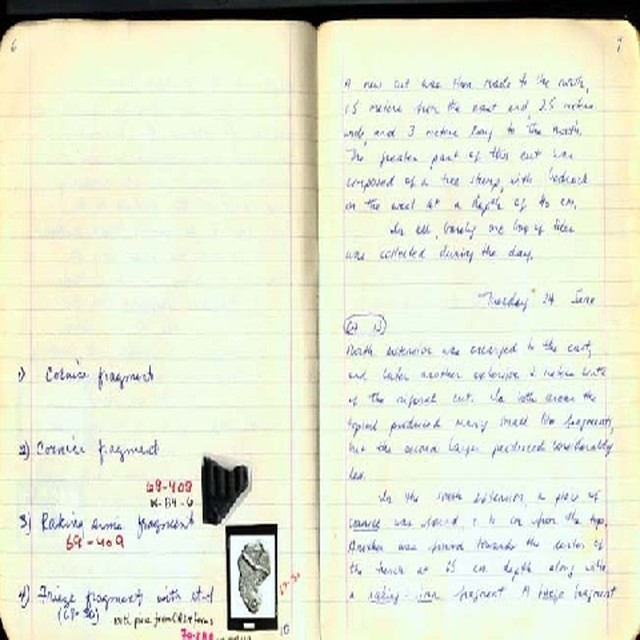 6
1) Cornice fragment
2) Cornice fragment
69-408
3) Raking sima fragment
69-409
4) Frieze fragment with stud
10
7
A new cut was then made to the north,
1.5 metre from the east end, 2.5 metre
wide, and 3 metres long to the north.
The greater part of this cut was
composed of a tree stump, with bedrock
on the west at a depth of 40 cm.
In all, barely one bag of tiles
was collected during the day.
Tuesday 24 June
North extension was enlarged to the east,
and later another extension 2 metres
of the original cut. In both areas the
topsoil produced many small tile fragments,
but the second layer produced considerably
less.
In the south extension, a piece of
cornice was found, cm from the top.
Another was found towards the center of
the trench at 65 cm depth along with
a raking sima fragment. A large fragment